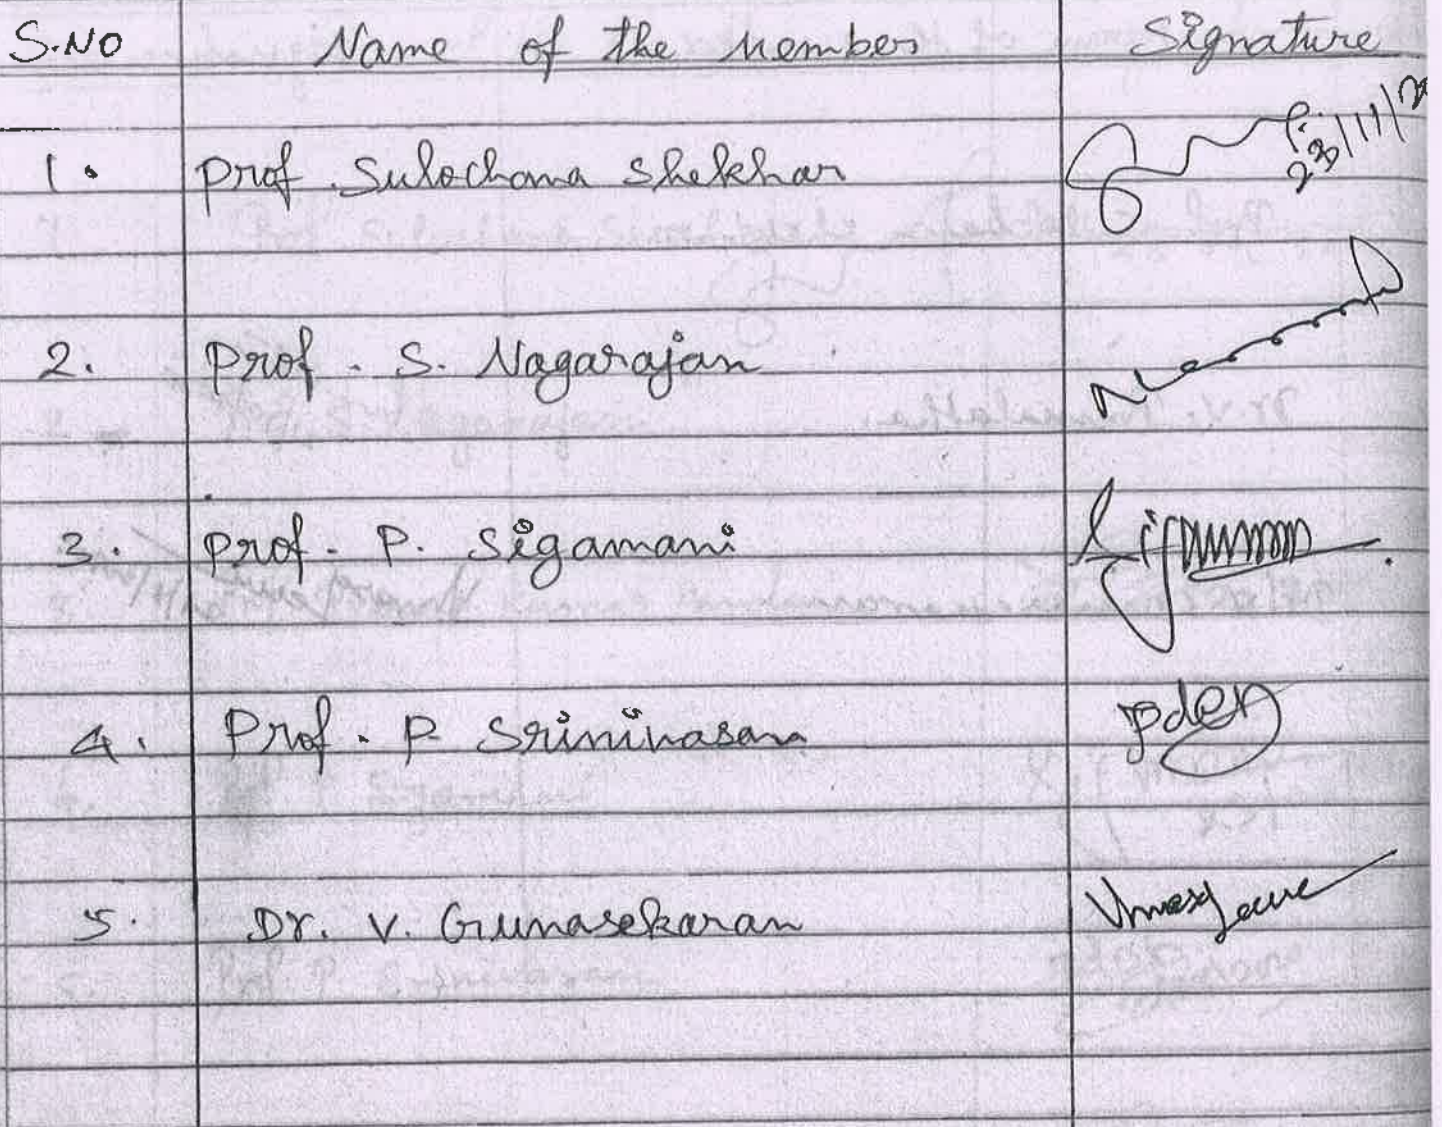 S.NO Name of the Member Signature
1. Prof. Sulochana Shekhar 23/11/2
2. Prof. S. Nagarajan
3. Prof. P. Sigamani
4. Prof. P. Srinivasan
5. Dr. V. Gunasekaran